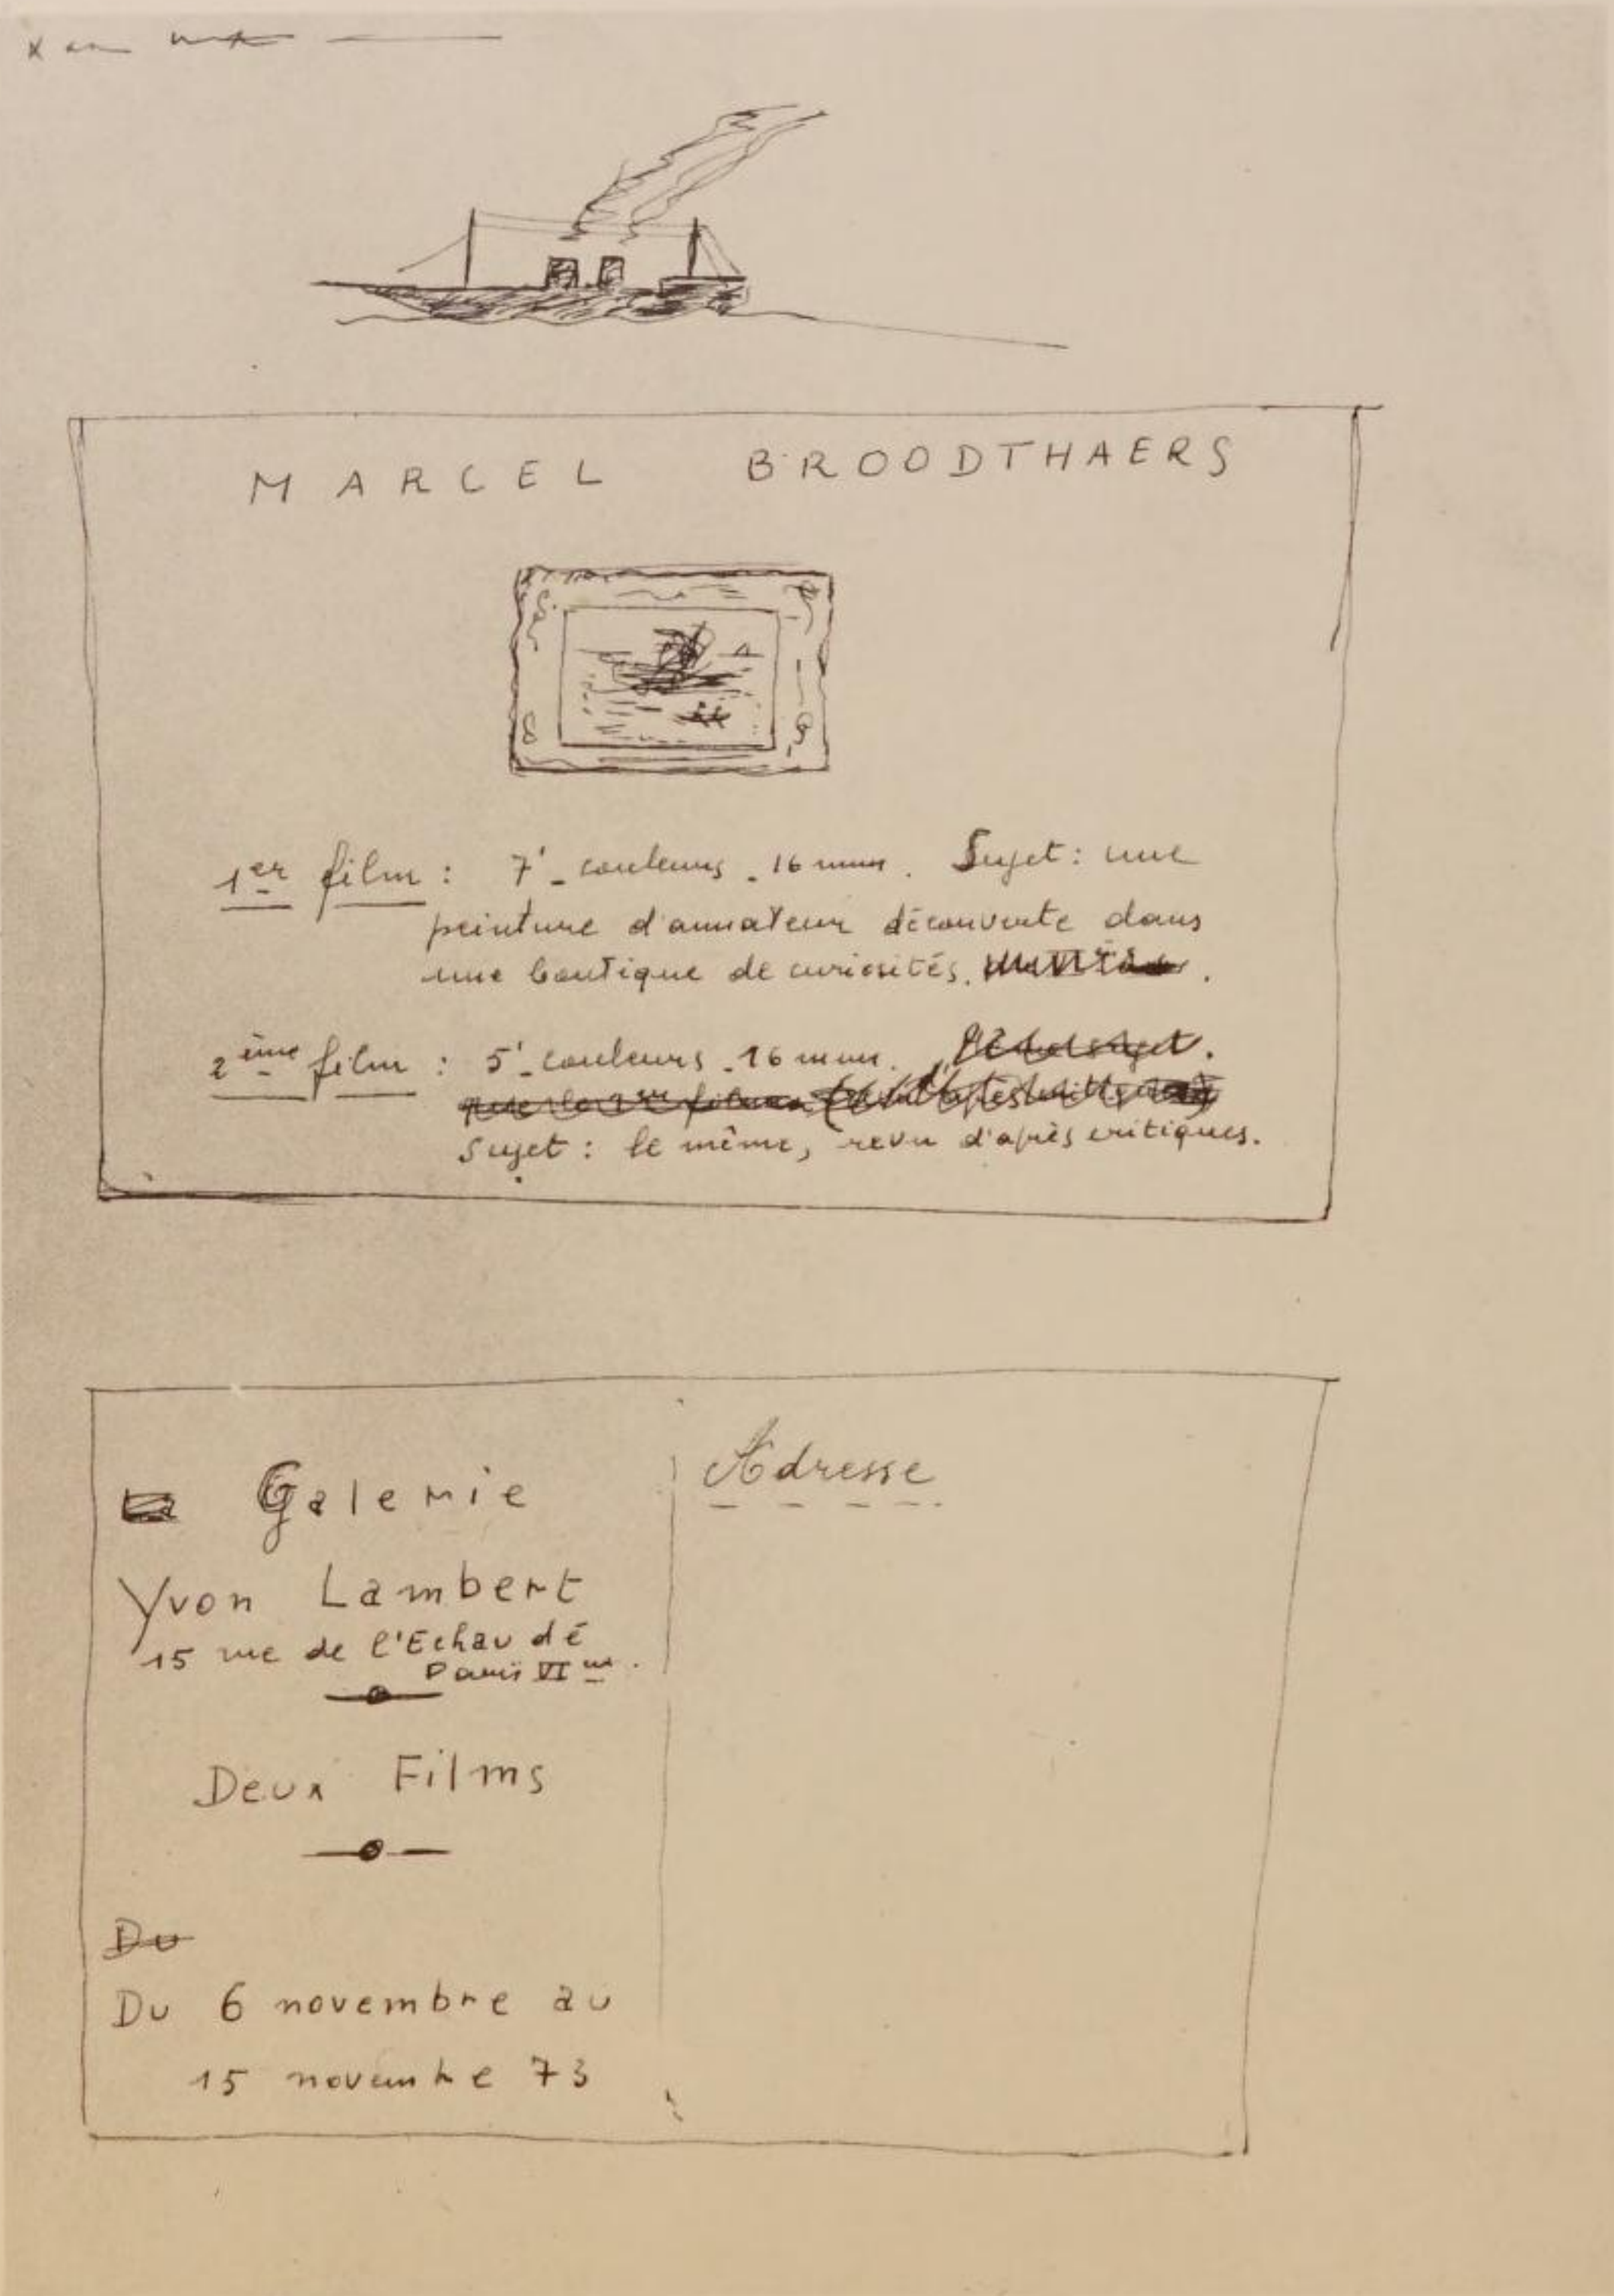 MARCEL BROODTHAERS
1er film : 7' - couleurs - 16 mm. Sujet : une
peinture d'amateur découverte dans
une boutique de curiosités.
2ème film : 5' - couleurs - 16 mm.
Sujet : le même, revu d'après critiques.
Galerie
Yvon Lambert
15 rue de l'Echaudé
Paris VI
Deux Films
Du
Du 6 novembre au
15 novembre 73
Adresse